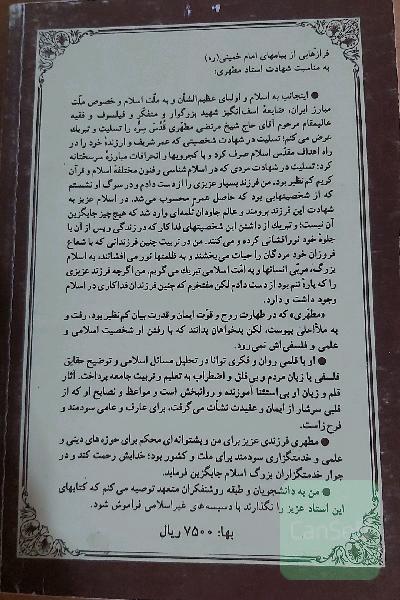 فرازهایی از پیامهای امام خمینی(ره)
به مناسبت شهادت استاد مطهری:
● اینجانب به اسلام و اولیای عظیم‌الشأن و به ملّت اسلام و خصوص ملّت
مبارز ایران، ضایعهٔ اسف‌انگیز شهید بزرگوار و متفکّر و فیلسوف و فقیه
عالیمقام مرحوم آقای حاج شیخ مرتضی مطهری قُدّس سِرّه را تسلیت و تبریک
عرض می‌کنم؛ تسلیت در شهادت شخصیتی که عمر شریف و ارزندهٔ خود را در
راه اهداف مقدّس اسلام صرف کرد و با کجرویها و انحرافات مبارزهٔ سرسختانه
کرد؛ تسلیت در شهادت مردی که در اسلام شناسی و فنون مختلفهٔ اسلام و قرآن
کریم کم‌نظیر بود. من فرزند بسیار عزیزی را از دست دادم و در سوگ او نشستم
که از شخصیتهایی بود که حاصل عمرم محسوب می‌شد. در اسلام عزیز به
شهادت این فرزند برومند و عالم جاودان ثُلمه‌ای وارد شد که هیچ چیز جایگزین
آن نیست؛ و تبریک از داشتن این شخصیتهای فداکار که در زندگی و پس از آن با
جلوهٔ خود نورافشانی کرده و می‌کنند. من در تربیت چنین فرزندانی که با شعاع
فروزان خود مردگان را حیات می‌بخشند و به ظلمتها نور می‌افشانند، به اسلام
بزرگ، مربّی انسانها و به امّت اسلامی تبریک می‌گویم. من اگرچه فرزند عزیزی
را که پارهٔ تنم بود از دست دادم لکن مفتخرم که چنین فرزندان فداکاری در اسلام
وجود داشت و دارد.
«مطهّری» که در طهارت روح و قوّت ایمان و قدرت بیان کم‌نظیر بود، رفت و
به ملأاعلی پیوست، لکن بدخواهان بدانند که با رفتن او شخصیت اسلامی و
علمی و فلسفی‌اش نمی‌رود.
● او با قلمی روان و فکری توانا در تحلیل مسائل اسلامی و توضیح حقایق
فلسفی با زبان مردم و بی‌قلق و اضطراب به تعلیم و تربیت جامعه پرداخت. آثار
قلم و زبان او بی‌استثنا آموزنده و روانبخش است و مواعظ و نصایح او که از
قلبی سرشار از ایمان و عقیدت نشأت می‌گرفت، برای عارف و عامی سودمند و
فرح‌زاست.
● مطهری فرزندی عزیز برای من و پشتوانه‌ای محکم برای حوزه‌های دینی و
علمی و خدمتگزاری سودمند برای ملت و کشور بود؛ خدایش رحمت کند و در
جوار خدمتگزاران بزرگ اسلام جایگزین فرماید.
● من به دانشجویان و طبقه روشنفکران متعهد توصیه می‌کنم که کتابهای
این استاد عزیز را نگذارند با دسیسه‌های غیراسلامی فراموش شود.
بها: ۷۵۰۰ ریال